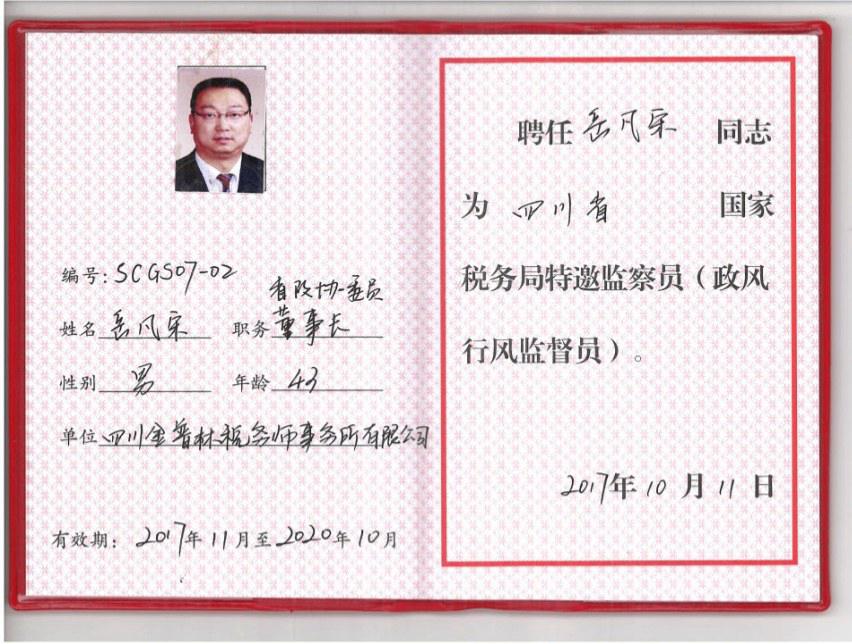 编号:SCGS07-02
省政协委员
姓名 岳凡宋 职务 董事长
性别 男 年龄 43
单位 四川金普林税务师事务所有限公司
有效期: 2017年11月至2020年10月
聘任 岳凡宋 同志
为 四川省 国家
税务局特邀监察员(政风
行风监督员)。
2017年10月11日